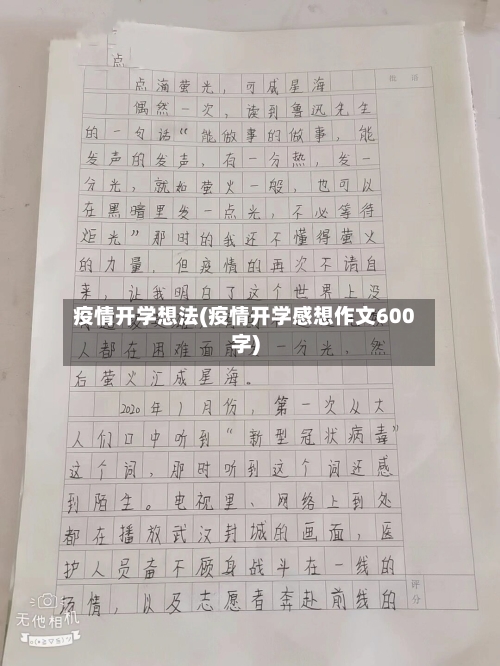 点
批 语
点滴萤光，可成星海
偶然一次，读到鲁迅先生
的一句话“能做事的做事，能
发声的发声，有一分热，发一
分光，就如萤火一般，也可以
在黑暗里发一点光，不必等待
炬光”那时的我还不懂得萤火
的力量，但疫情的再次不请自
来，让我明白了这个世界上没
疫情开学想法(疫情开学感想作文600
字)
人都在困难面前 一分光，然
后萤火汇成星海。
2020年1月份，第一次从大
人们口中听到“新型冠状病毒”
这个词，那时听到这个词还感
到陌生。电视里、网络上到处
都在播放武汉封城的画面，医
护人员奋不顾身战斗在一线的
情，以及志愿者奔赴前线的
评
分
无他相机